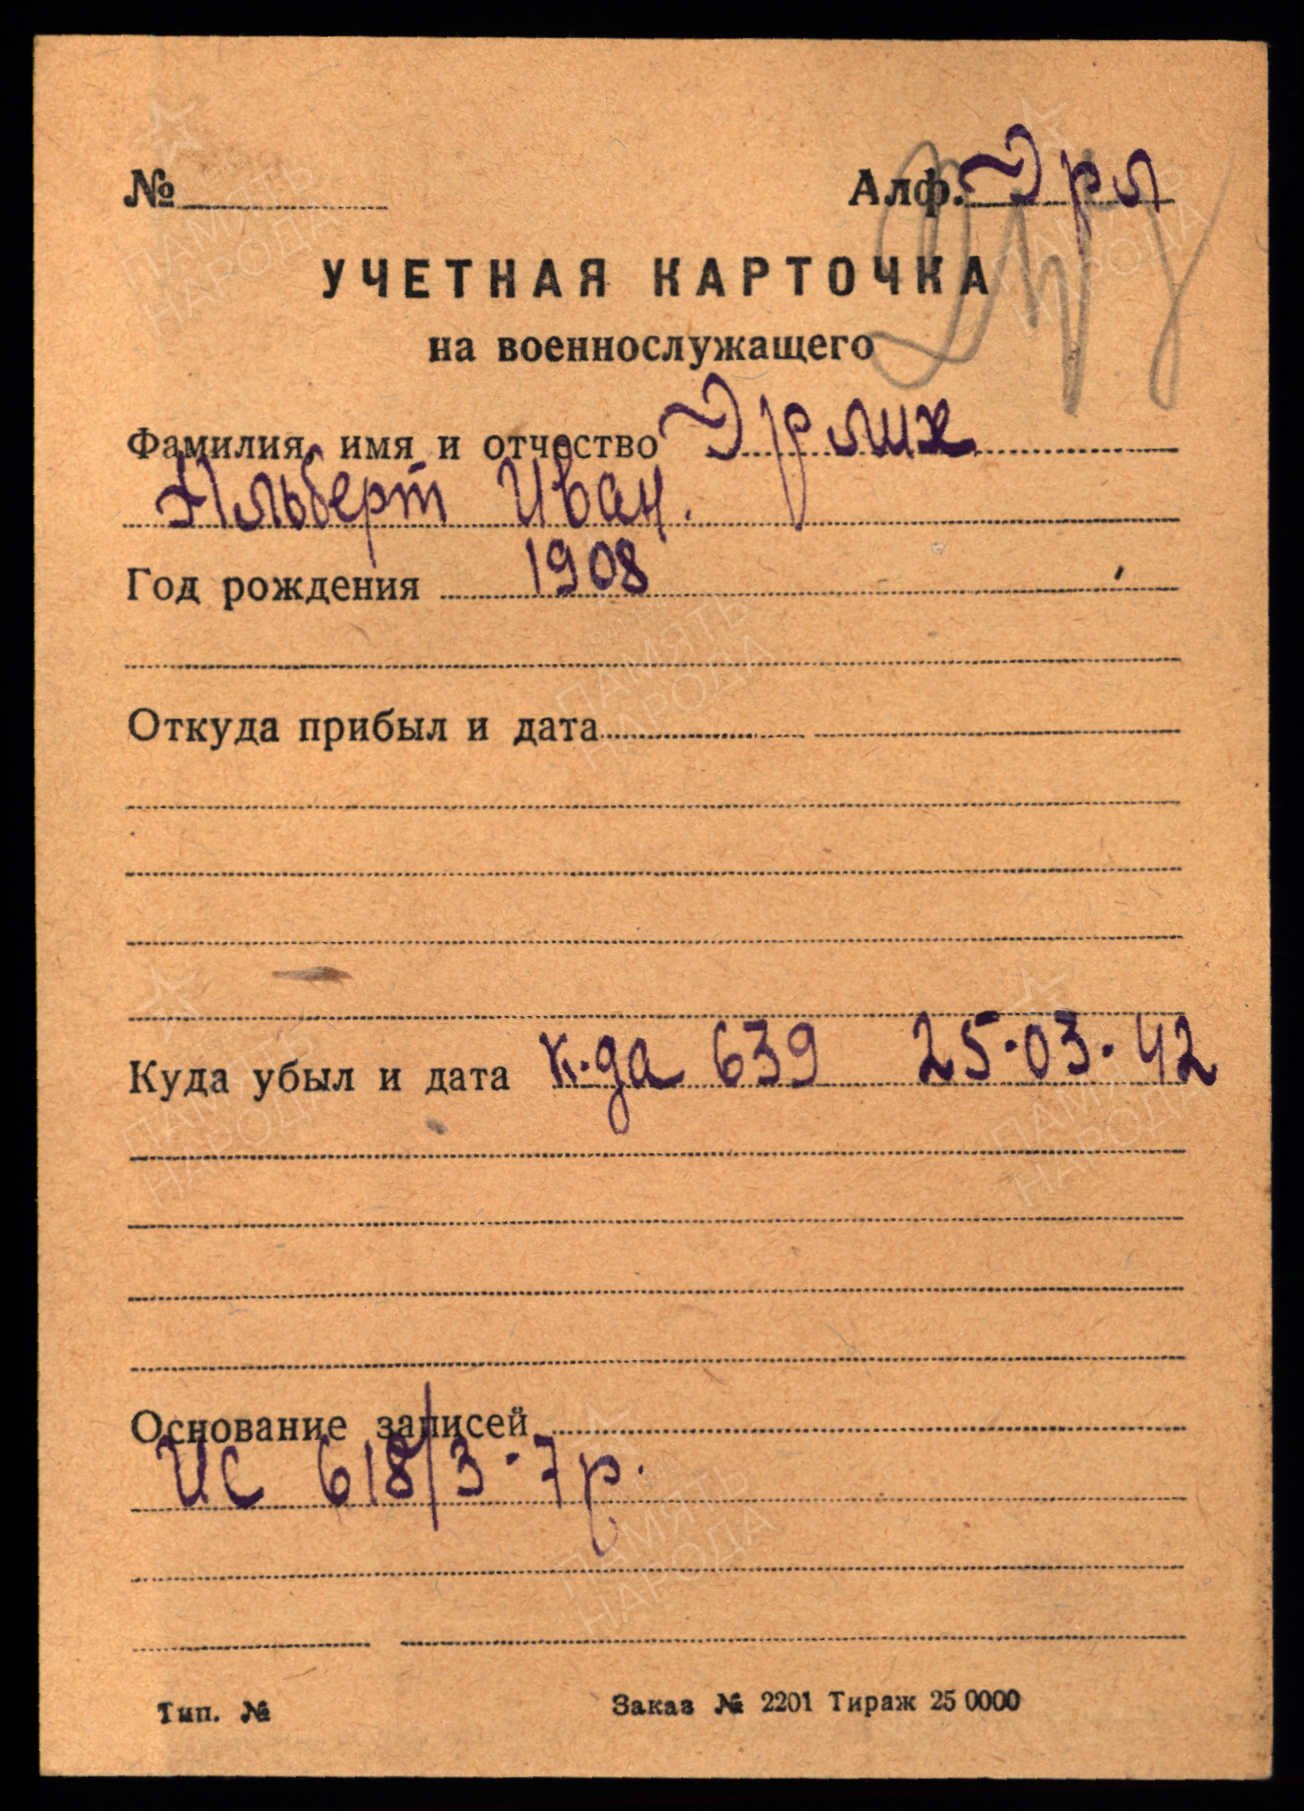 № Алф. Эрл
УЧЕТНАЯ КАРТОЧКА
на военнослужащего
Фамилия, имя и отчество Эрлих
Альберт Иван.
Год рождения 1908
Откуда прибыл и дата
Куда убыл и дата к-да 639 25-03-42
Основание записей
ИС 618/3-7р.
Тип. № Заказ № 2201 Тираж 25 0000
ПАМЯТЬ
НАРОДА